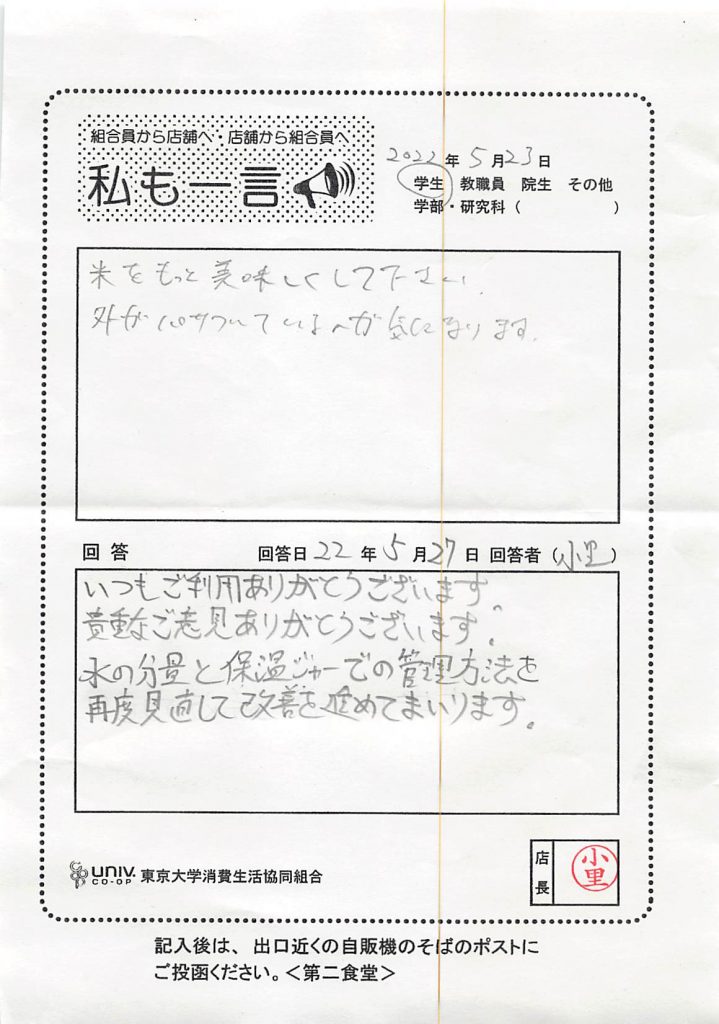 組合員から店舗へ・店舗から組合員へ
私も一言
2022年5月23日
学生 教職員 院生 その他
学部・研究科( )
米をもっと美味しくして下さい。
外がパサついているのが気になります。
回答 回答日22年5月27日 回答者(小里)
いつもご利用ありがとうございます。
貴重なご意見ありがとうございます。
水の分量と保温ジャーでの管理方法を
再度見直して改善を進めてまいります。
UNIV. CO-OP 東京大学消費生活協同組合
店長 小里
記入後は、出口近くの自販機のそばのポストに
ご投函ください。<第二食堂>